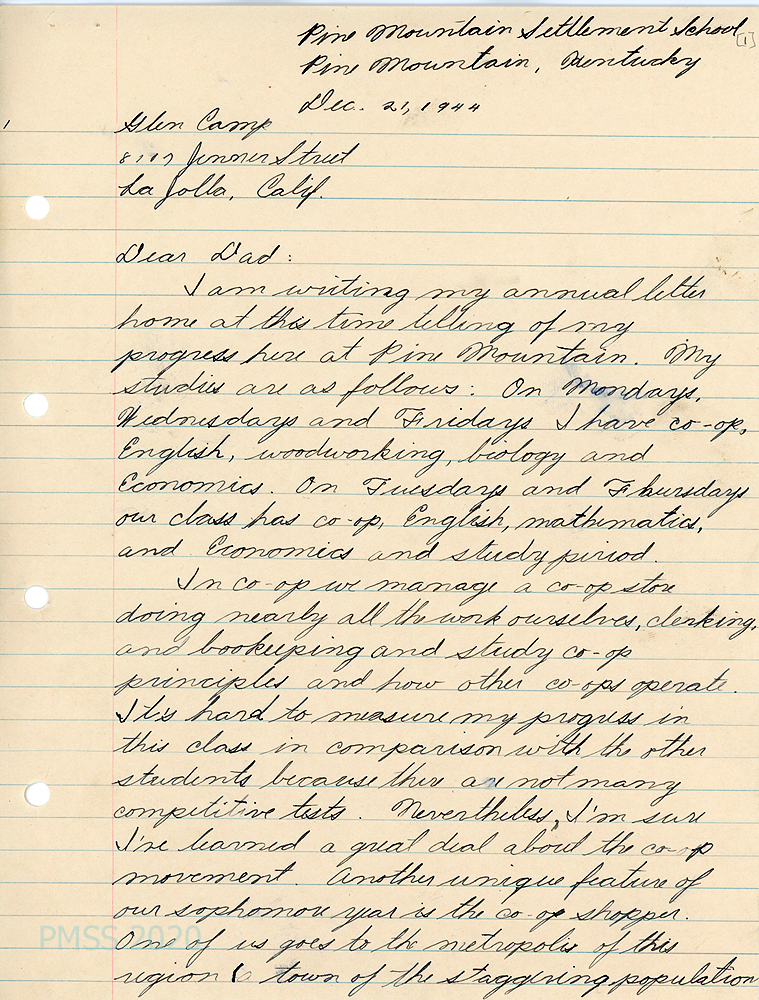 Pine Mountain Settlement School
[1]
Pine Mountain, Kentucky
Dec. 21, 1944
Glen Camp
Jenner Street
La Jolla, Calif.
Dear Dad:
I am writing my annual letter
home at this time telling of my
progress here at Pine Mountain. My
studies are as follows: On Mondays,
Wednesdays and Fridays I have co-op,
English, woodworking, biology and
Economics. On Tuesdays and Thursdays
our class has co-op, English, mathematics,
and Economics and study period.
In co-op we manage a co-op store
doing nearly all the work ourselves, clerking,
and bookeeping and study co-op
principles and how other co-ops operate.
It is hard to measure my progress in
this class in comparison with the other
students because there are not many
competitive tests. Nevertheless, I'm sure
I've learned a great deal about the co-op
movement. Another unique feature of
our sophomore year is the co-op shopper.
One of us goes to the metropolis of this
region (a town of the staggering population
PMSS 2020